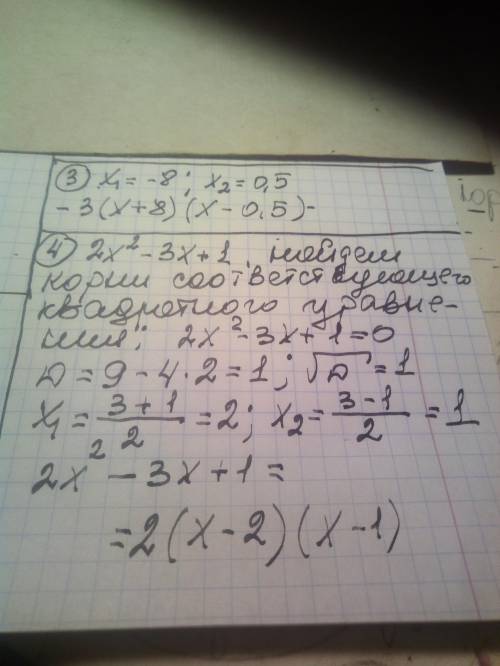 ③ x₁ = -8; x₂ = 0,5
- 3(x+8)(x - 0,5) -
④ 2x² - 3x + 1. найдем
корни соответствующего
квадратного уравне-
ния: 2x² - 3x + 1 = 0
D = 9 - 4 · 2 = 1; √D = 1
x₁ = (3+1)/2 = 2; x₂ = (3-1)/2 = 1
2x² - 3x + 1 =
= 2(x - 2)(x - 1)